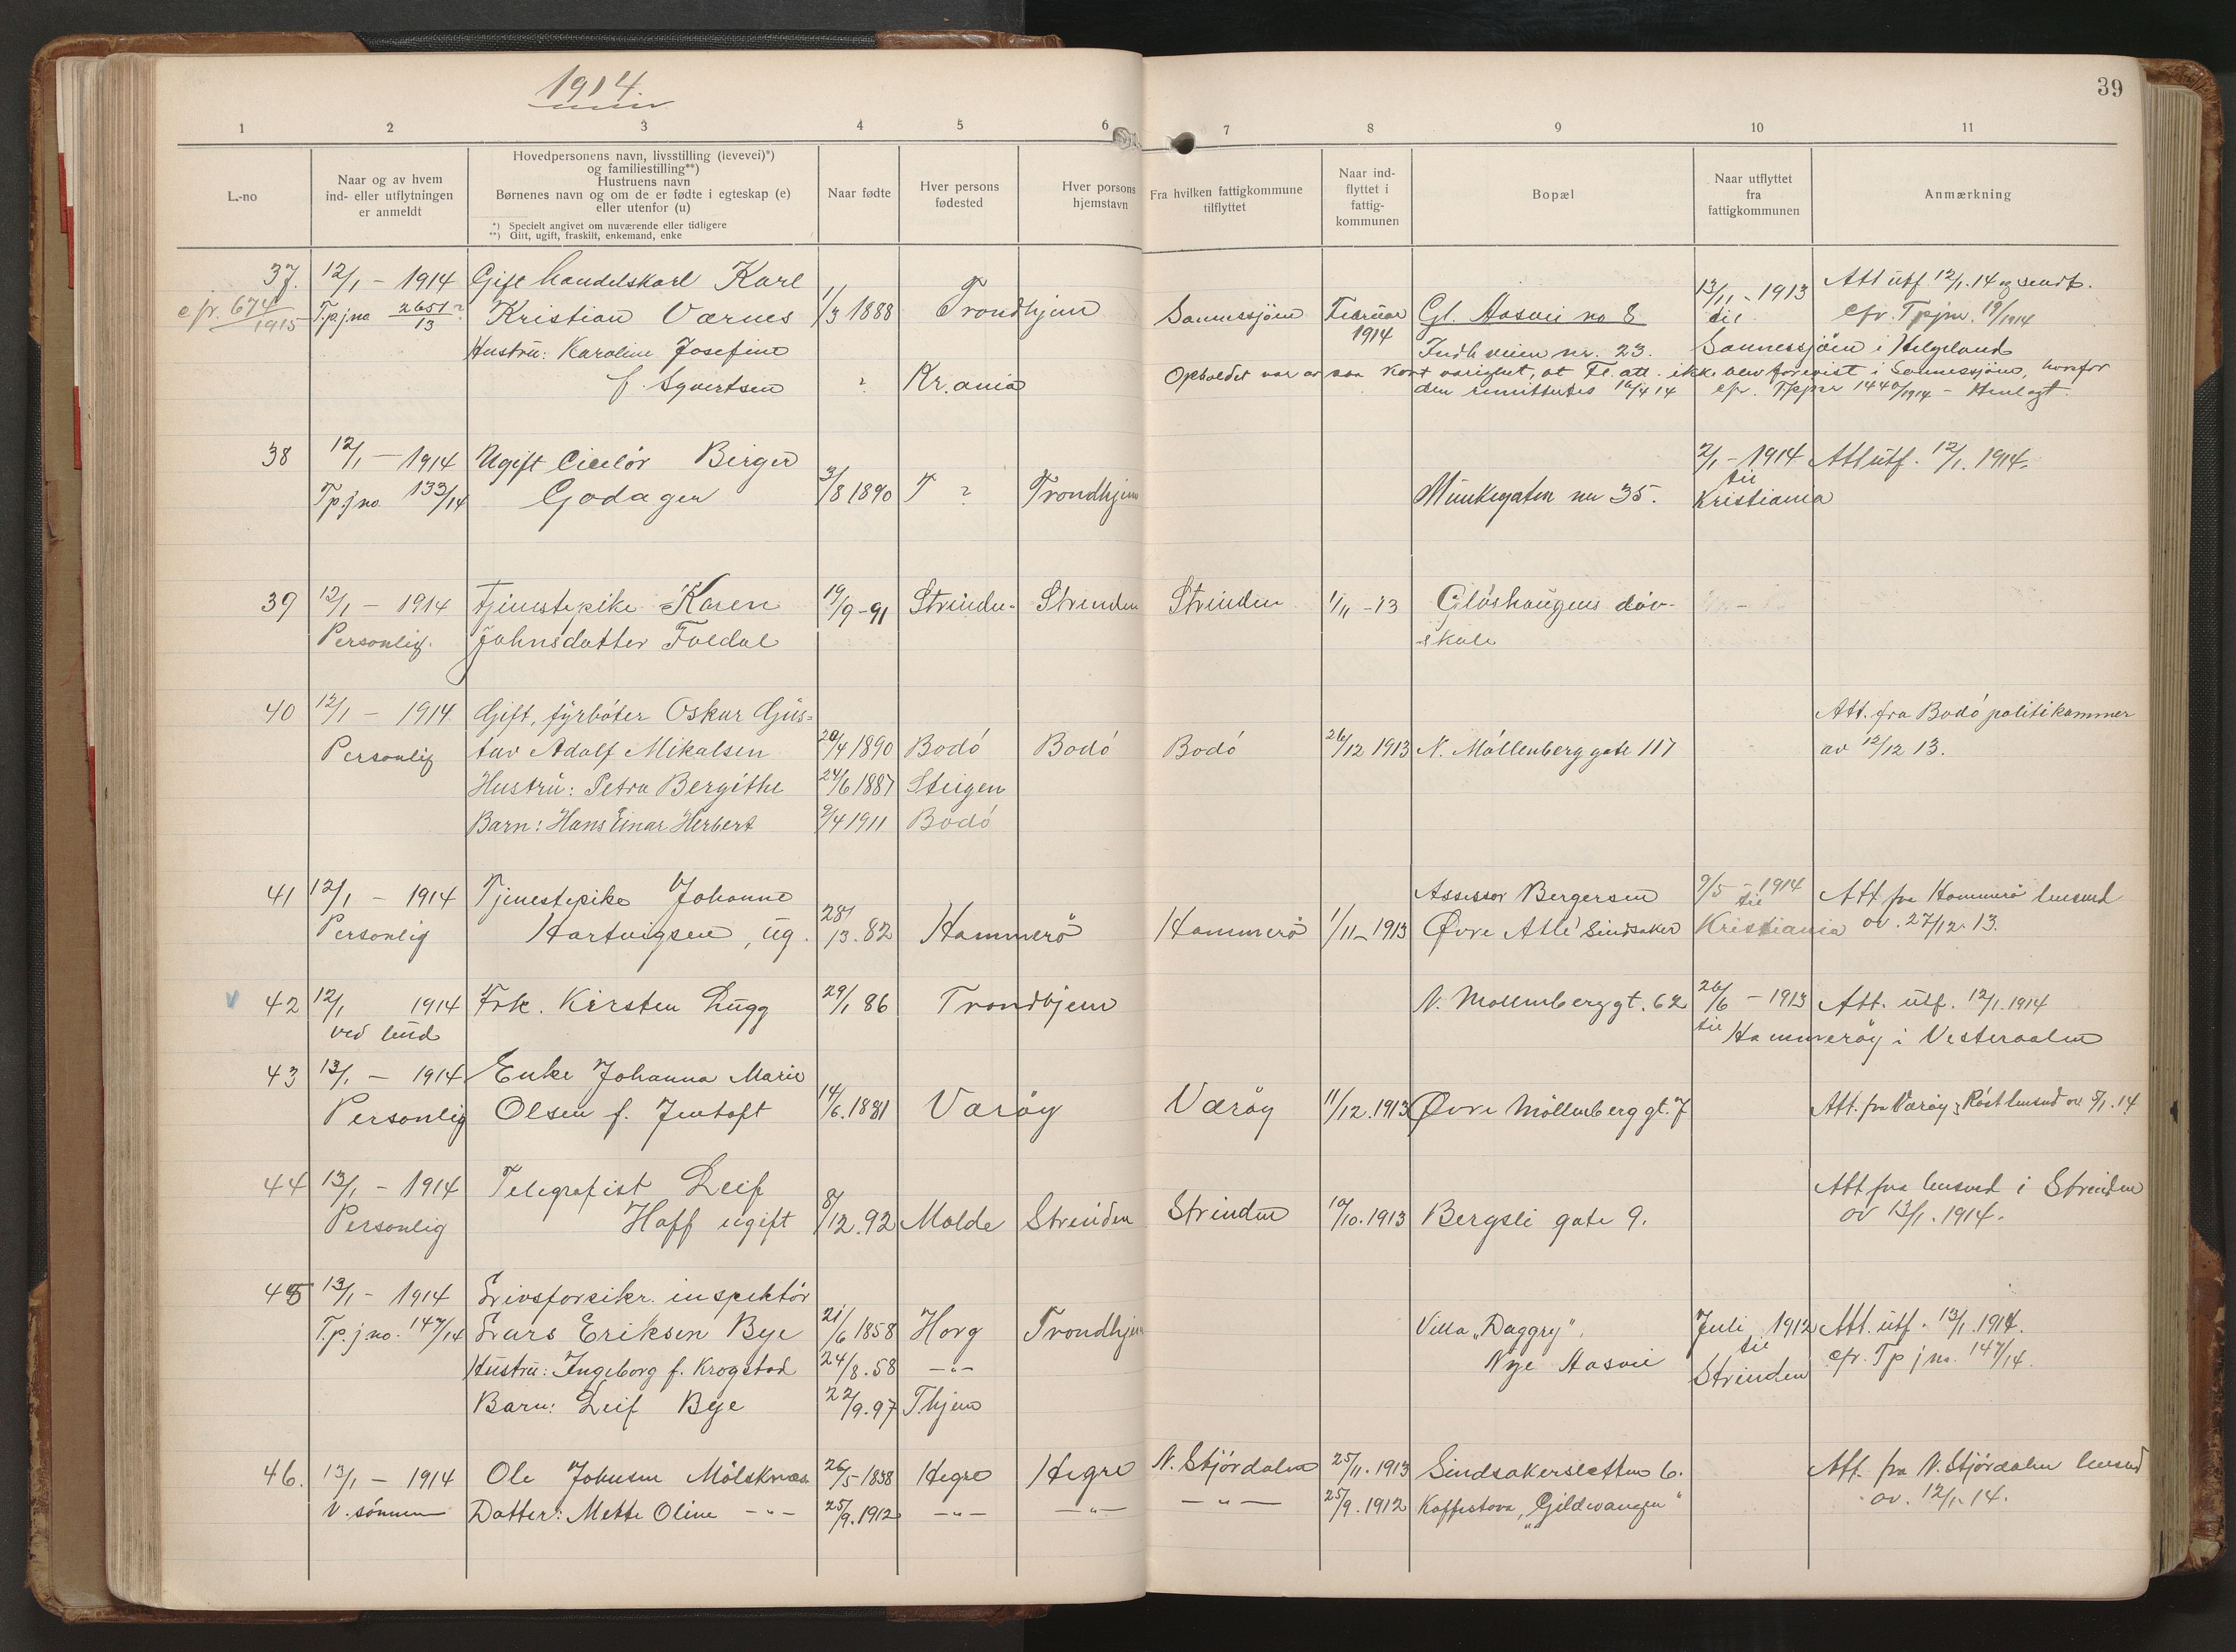 1914.
39
1 2 3 4 5 6 7 8 9 10 11
L.-no
Naar og av hvem
ind- eller utflytningen
er anmeldt
Hovedpersonens navn, livsstilling (levevei)*)
og familiestilling**)
Hustruens navn
Børnenes navn og om de er fødte i egteskap (e)
eller utenfor (u)
*) Specielt angivet om nuværende eller tidligere
**) Gift, ugift, fraskilt, enkemand, enke
Naar fødte
Hver persons
fødested
Hver persons
hjemstavn
Fra hvilken fattigkommune
tilflyttet
Naar ind-
flyttet i
fattig-
kommunen
Bopæl
Naar utflyttet
fra
fattigkommunen
Anmærkning
37. 12/1 - 1914 Gift handelskarl Karl 13/11 - 1913 Att utf. 12/1. 14 og sendt.
cfr. 674/1915 T.p.j.no 2651/13 ? KristianVærnes 1/3 1888 Trondhjem Sannessjöen Februar 1914 Gl. Aasvei no 8 til cfr. Tpjnr. 19/1914
Hustru: Karoline Josefine Indh veien nr. 23. Sannessjöen i Helgeland
f. Syvertsen ? Kr.ania Opholdet var av saa kort varighet, at Fl. att. ikke blev forevist i Sannessjöen, hvorfor
den remitteres 16/4 14 cfr. Tpjnr 1440/1914 - Henlagt.
38 12/1 - 1914 Ugift Birger 2/1 - 1914 Att utf. 12/1. 1914.
T.p.j no. 133/14 Godager 31/8 1890 T ? Trondhjem Munkegaten nr 35. til Kristiania
39 12/1 - 1914 Tjenestepike Karen 19/9 - 91 Strinden Strinden Strinden 1/11 - 13 Glöshaugens döv-
Personlig. Johnsdatter Foldal skole
40 12/1 - 1914 Gift, fyrböter Oskar Gus= Att. fra Bodö politikammer
Personlig tav Adolf Mikalsen 20/4 1890 Bodö Bodö Bodö 26/12 1913 N. Möllenberg gate 117 av 12/12 13.
Hustru: Petra Bergithe 24/6 1887 Steigen
Barn: Hans Einar Herbert 9/4 1911 Bodö
41 12/1 - 1914 Tjenestepike Johanne Assessor Bergersen 9/5 - 1914 til Att fra Hammerö lensmd
Personlig Hartvigsen, ug. 28/13. 82 Hammerö Hammerö 1/11 - 1913 Øvre Allé Sindsaker Kristiania av. 27/12. 13.
42 12/1 1914 Frk. Kirsten Lugg 29/1 86 Trondhjem N. Mollenberg gt. 62 26/6 - 1913 Att. utf. 12/1. 1914
ved bud til Hammeröy i Vesteraalen
43 13/1 - 1914 Enke Johanna Marie
Personlig Olsen f. Jentoft 14/6. 1881 Væröy Væröy 11/12. 1913 Øvre Möllenberg gt. 7 Att. fra Væröy & Röst lensmd av 5/1. 14
44 13/1 - 1914 Telegrafist Leif Att fra lensmd i Strinden
Personlig Hoff ugift 8/12. 92 Molde Strinden Strinden 10/10. 1913 Bergsli gate 9. av 13/1. 1914.
45 13/1 - 1914 Livsforsikr. inspektör
T.p.j no. 147/14 Lars Eriksen Bye 21/6 1858 Horg Trondhjem Villa „Daggry“, Juli 1912 Att. utf. 13/1. 1914.
Hustru: Ingeborg f. Krogstad 24/8. 58 -"- Nye Aasvei til Strinden cfr. T p j no. 147/14.
Barn: Leif Bye 22/9. 97 T.hjem
46. 13/1 - 1914 Ole Johnsen Mölsknæs 26/5 1838 Hegre Hegre N. Stjördalen 25/11. 1913 Sindsakersletten 6. Att. fra N. Stjördalen lensmd
v. sönnen Datter: Mette Oline -"- 25/9. 1912 -"- -"- -"- 25/9. 1912 Kaffistova „Gildevangen“ av. 12/1. 14.